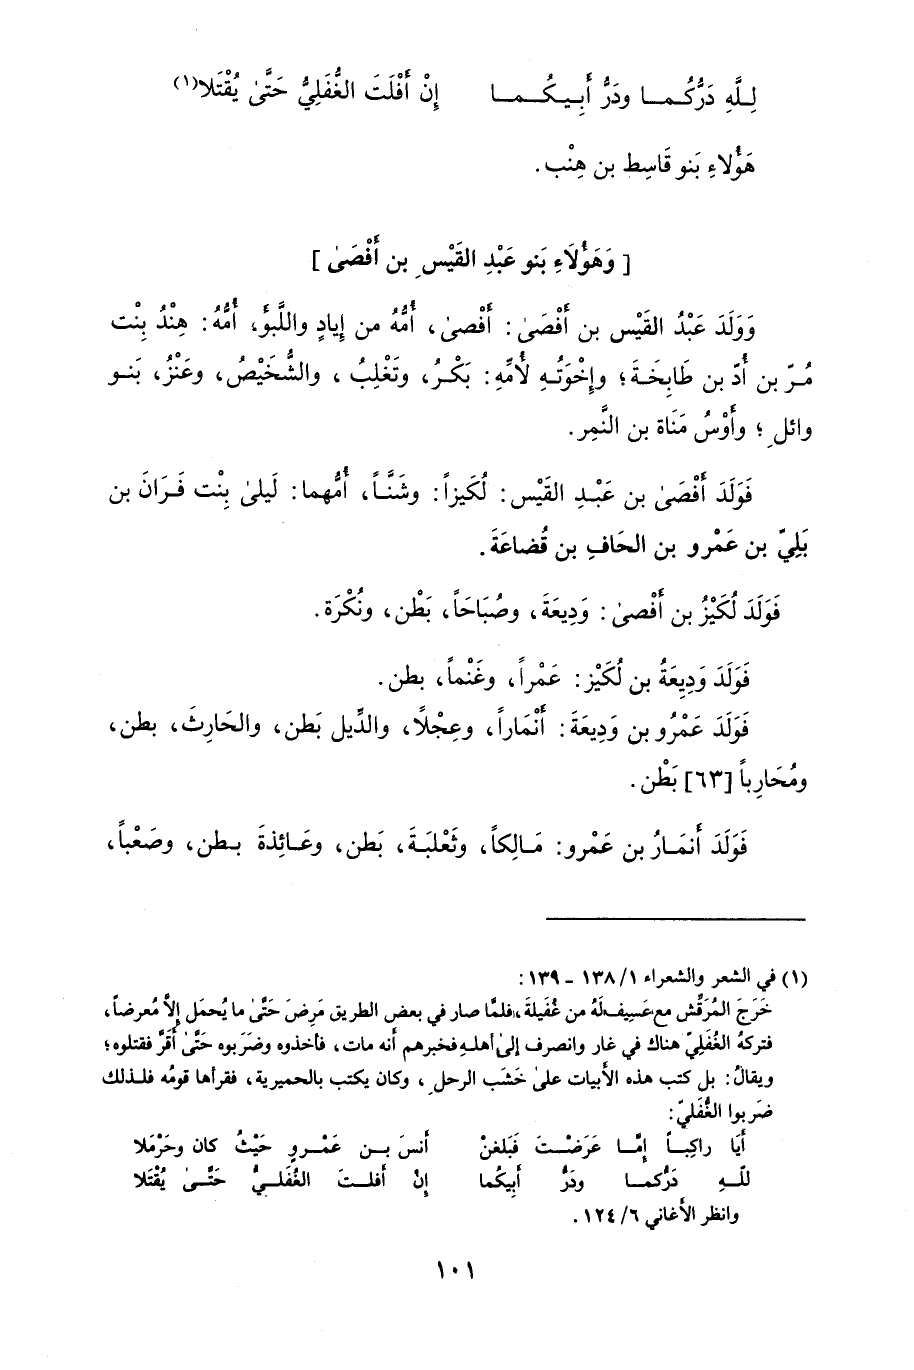 لِلَّهِ دَرُّكُمَا ودَرُّ أَبِيكُمَا إِنْ أَفْلَتَ الغُّفَلِيُّ حَتَّىٰ يُقْتَلا(١)
هَؤُلاءِ بَنو قَاسِط بن هِنْب.
[وَهَؤُلَاءِ بَنو عَبْدِ القَيْسِ بن أَفْصَىٰ]
وَوَلَدَ عَبْدُ القَيْس بن أَفْصَىٰ: أَفْصىٰ، أُمُّهُ من إيادٍ واللَّبؤَ، أُمُّهُ: هِنْدُ بِنْت
مُرّ بن أُدّ بن طَابِخَةَ؛ وإخْوَتُهِ لأُمِّهِ: بَكْرُ، وتَغْلِبُ، والشُّخَيْصُ، وعَنْزُ، بَنو
وائلٍ؛ وأَوْسُ مَنَاة بن النَّمِر.
فَوَلَدَ أَفْصَىٰ بن عَبْدِ القَيْس: لُكَيزاً: وشَنَّاً، أمُّهما: لَيلىٰ بِنْت فَرَانَ بن
بَلِيّ بن عَمْرو بن الحَافِ بن قُضاعَةَ.
فَوَلَدَ لُكَيْزُ بن أَفْصىٰ: وَدِيعَةَ، وصُبَاحَاً، بَطْن، ونُكْرَة.
فَوَلَدَ وَدِيعَةُ بن لُكَيْز: عَمْراً، وغَنْماً، بطن.
فَوَلَدَ عَمْرُو بن وَدِيعَةَ: أَنْمَاراً، وعِجْلًا، والدِّيل بَطن، والحَارِثَ، بطن،
ومُحَارِباً [٦٣] بَطْن.
فَوَلَدَ أَنمَارُ بن عَمْرو: مَالِكاً، وثَعْلبَةَ، بَطن، وعَائِذةَ بطن، وصَعْباً،
(١) في الشعر والشعراء ١/ ١٣٨ - ١٣٩:
خَرَجَ المُرَقِّش مع عَسِيف لَهُ من غُفَيلة، فلمَّا صار في بعض الطريق مَرِضَ حَتَّىٰ ما يُحمَل إلاَّ مُعرضاً،
فتركهُ الغُفَليّ هناك في غار وانصرف إلىٰ أهلهِ فخبرهم أنه مات، فأخذوه وضَربوه حَتَّىٰ أقَرَّ فقتلوه؛
ويقالُ: بل كتب هذه الأبيات علىٰ خَشَب الرحلِ، وكان يكتب بالحميرية، فقرأها قومُه فلذلك
ضَربوا الغُفَليّ:
أيَا راكِباً إمَّا عَرَضْتَ فَبَلغنْ أنسَ بن عَمْروٍ حَيْثُ كان وحَرْملا
للّهِ دَرُّكما ودَرُّ أبِيكُما إنْ أفلتَ الغُفَليُّ حَتَّىٰ يُقْتَلا
وانظر الأغاني ٦/ ١٢٤.
١٠١